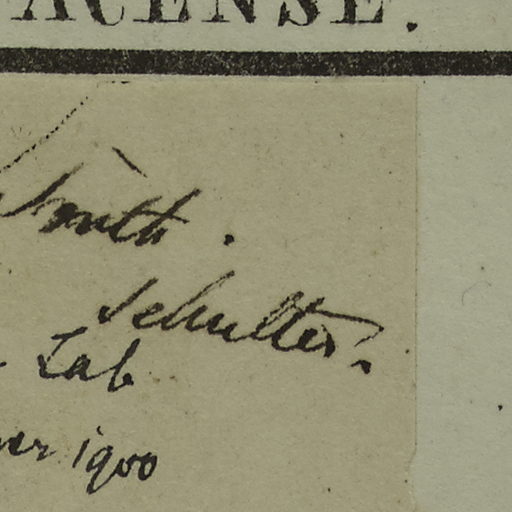 ACENSE.
Smith.
Schulter.
Lab
1900